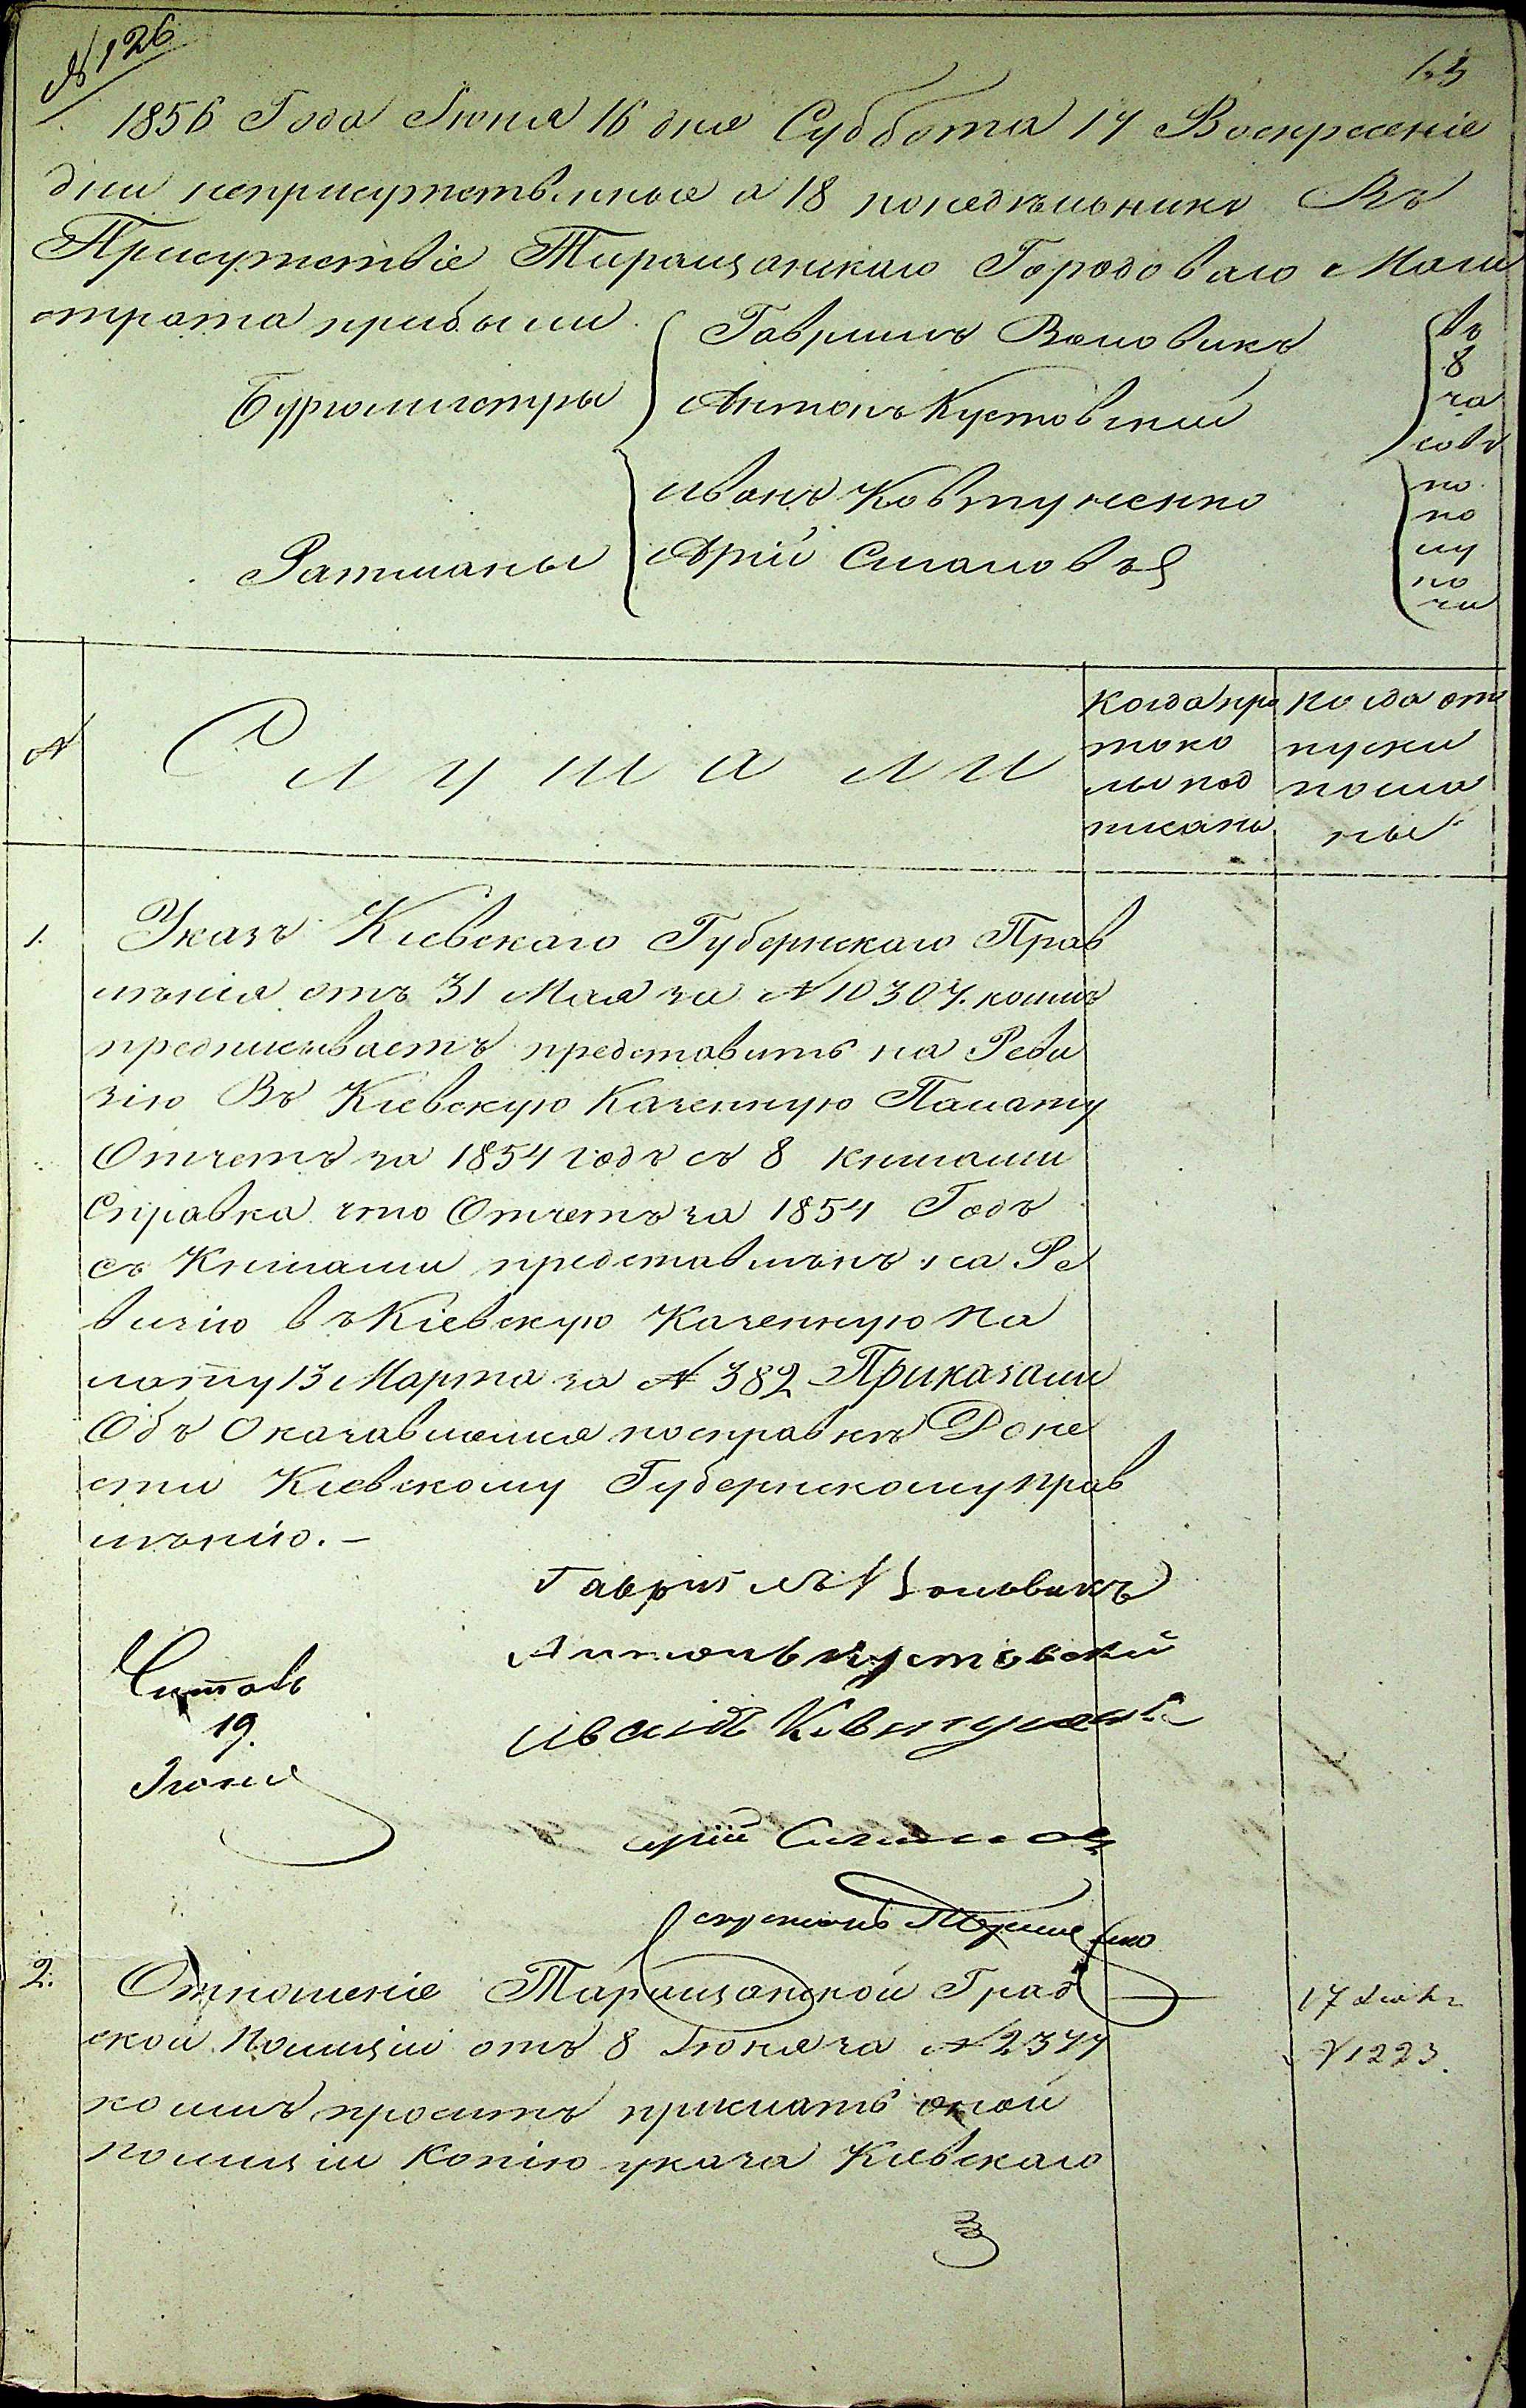 № 126
1856 Года Іюня 16 дня Суббота 17 Воскресеніе
дни неприсутственные а 18 понедѣльникъ Въ
Присутствіе Таращанскаго Городоваго Маги
страта прибыли
Гаврилъ Воловикъ
Бургомистры
Антонъ Кустовскій
Иванъ Ковтуненко
Ратманы
Арій Смаловъ
въ
8
ча
совъ
по
по
лу
но
чи
№
Слушали
Когда про
токо
лы под
писаны
Когда от
пуски
посла
ны
1.
Указъ Кіевскаго Губернскаго Прав
лѣнія отъ 31 Мая за № 10307. коимъ
предписываетъ представить на Реви
зію Въ Кіевскую Казенную Палату
Отчетъ за 1854 годъ съ 8 книгами
Справка что Отчетъ за 1854 Годъ
съ Книгами представлѣнъ на Ре
визію въ Кіевскую Казенную Па
лату 13 Марта за № 382 Приказали
Объ Оказавшемся по справкѣ Доне
сти Кіевскому Губернскому прав
лѣнію. –
Гавріилъ Воловикъ
Антонъ Кустовскій
Читалъ
19.
Іюня
Иванъ Ковтуненко
Арій
2.
Отношеніе Таращанской Град
ской Полиціи отъ 8 Іюня за № 2377
коимъ проситъ прислать оной
полиціи Копію указа Кіевскаго
17
№ 1223.